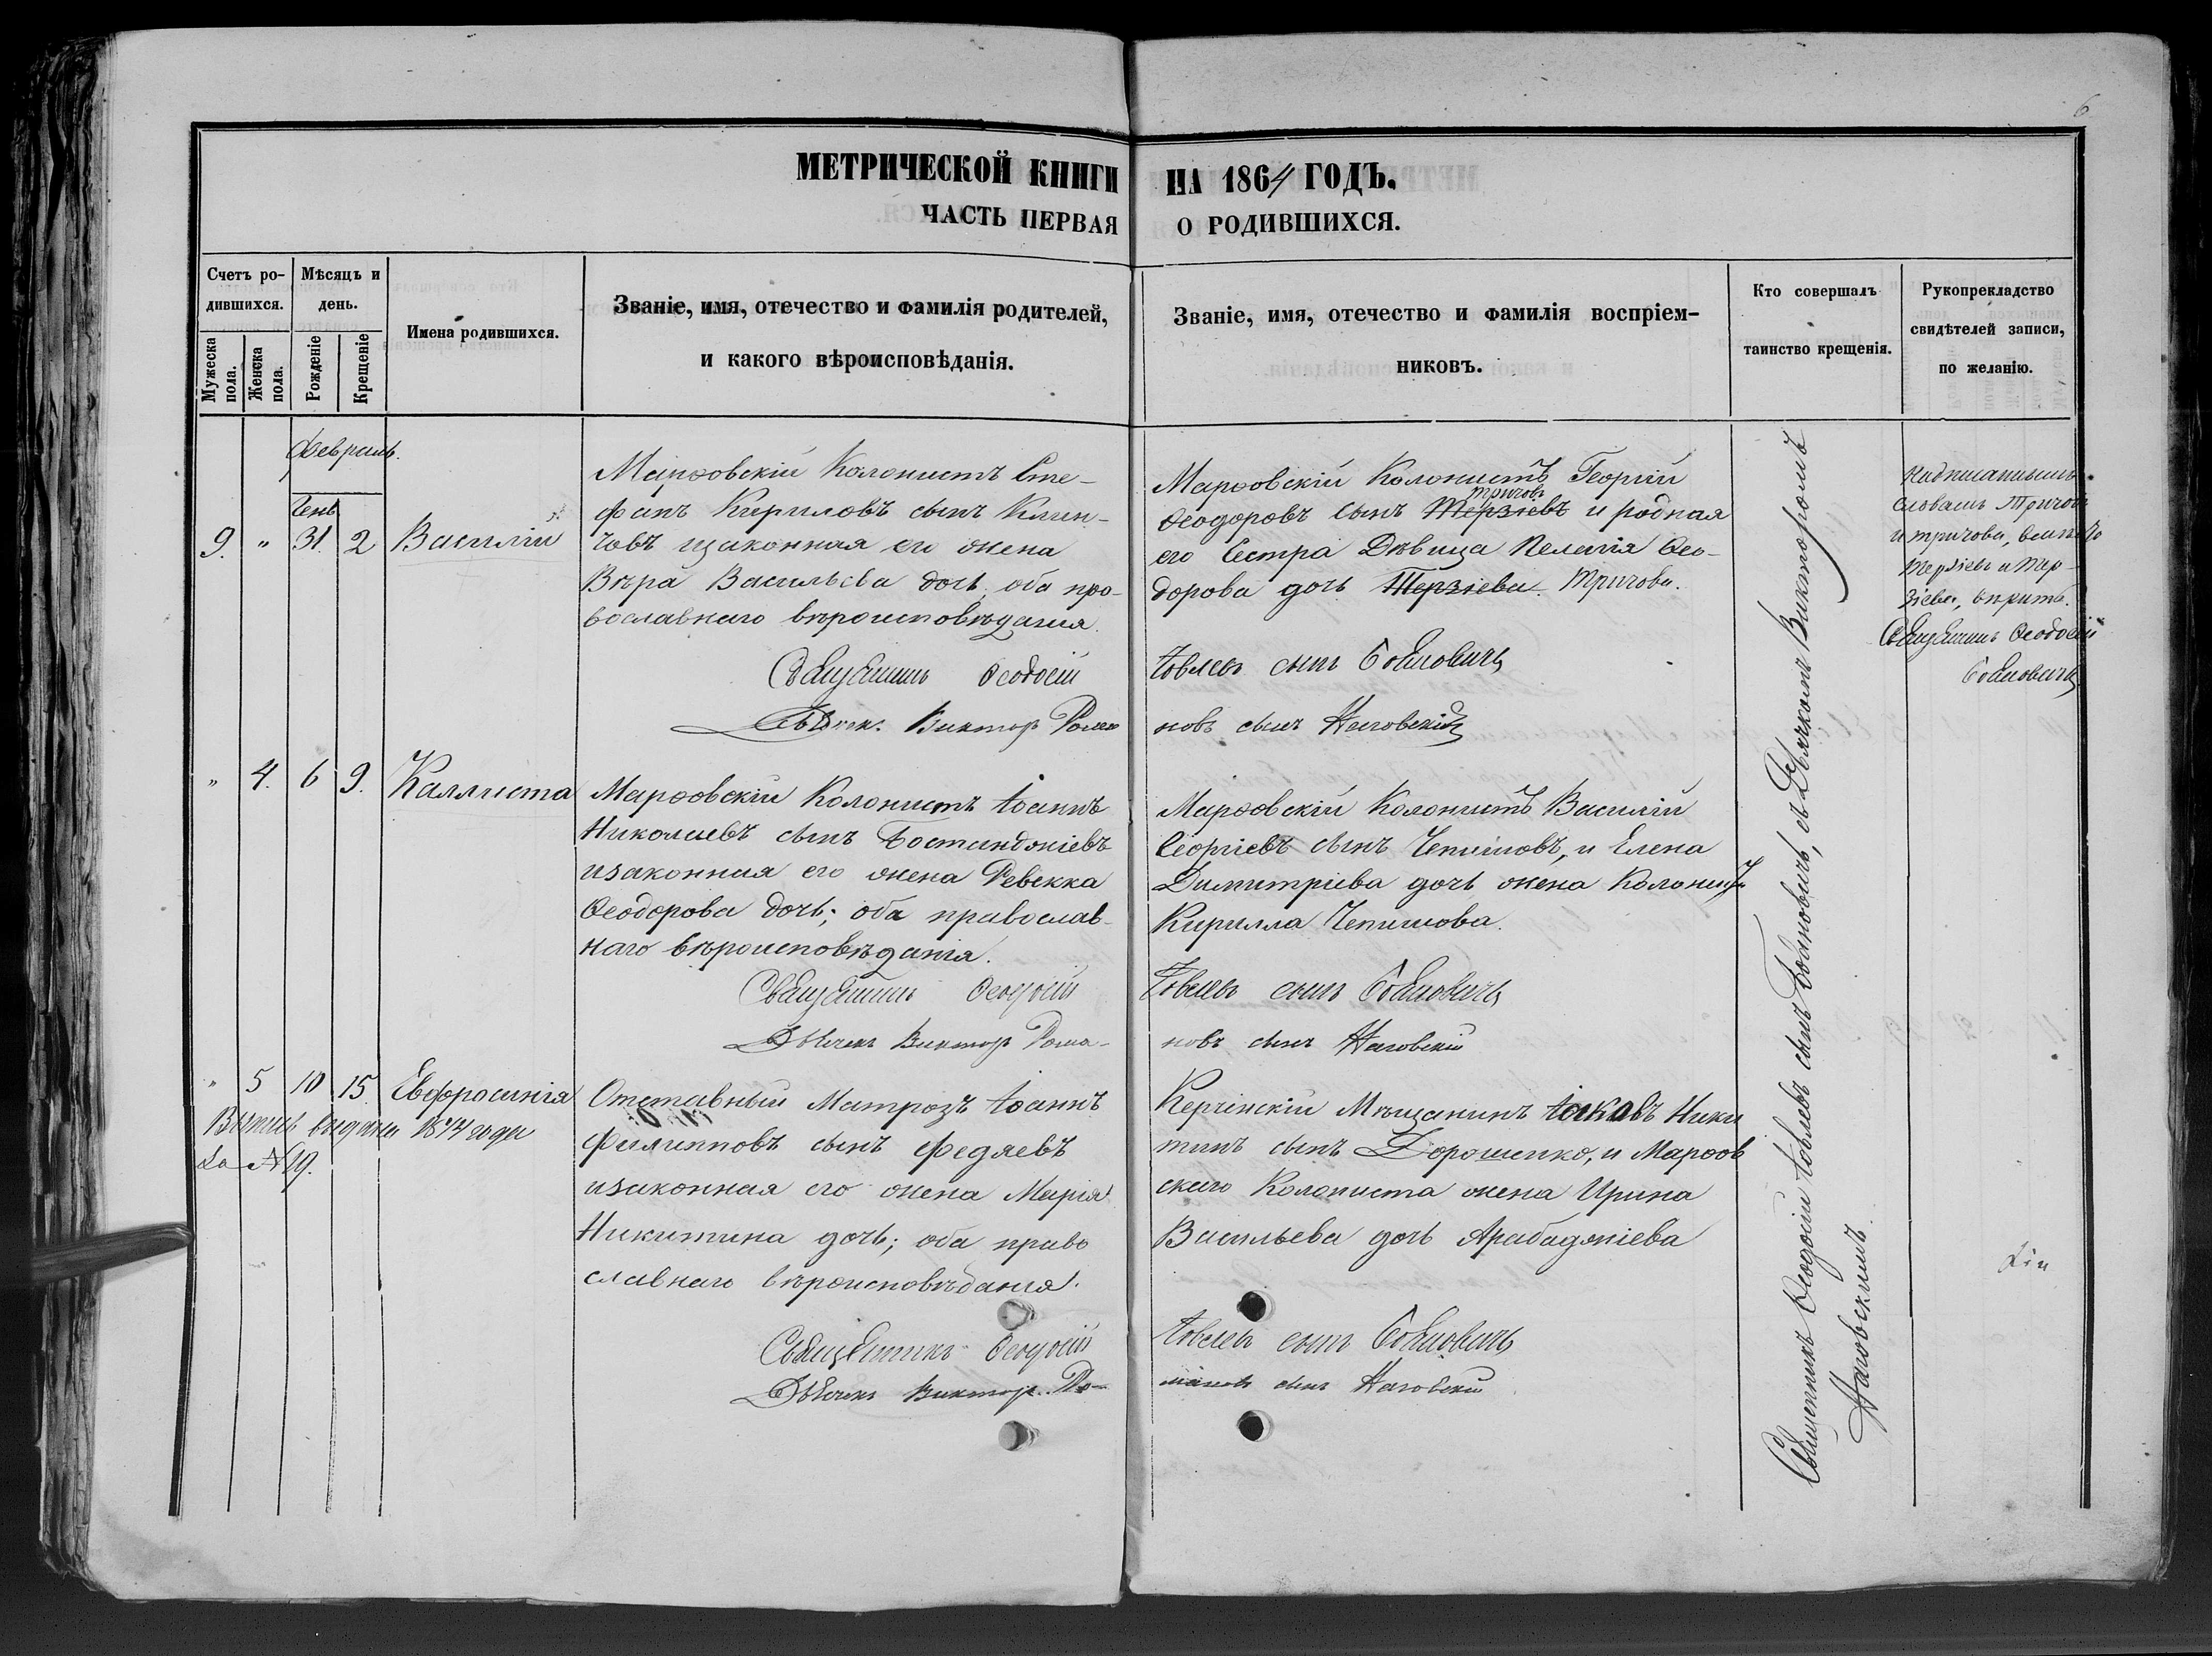 6
МЕТРИЧЕСКОЙ КНИГИ НА 1864 ГОДЪ.
ЧАСТЬ ПЕРВАЯ О РОДИВШИХСЯ.
Счетъ ро-
дившихся.
Мужеска пола.
Женска пола.
Мѣсяцъ и
день.
Рожденіе
Крещеніе
Имена родившихся.
Званіе, имя, отечество и фамилія родителей,
и какого вѣроисповѣданія.
Званіе, имя, отечество и фамилія воспріем-
никовъ.
Кто совершалъ
таинство крещенія.
Рукопрекладство
свидѣтелей записи,
по желанію.
Февраль.
Генв
9. " 31. 2 Василій
Марѳовскій Колонистъ Сте-
фанъ Кириловъ сынъ Клин-
човъ изаконная его жена
Вѣра Васильева дочь, оба пра-
вославнаго вѣроисповѣданія.
Священникъ Ѳеодосій
Дьячек. Виктор Рома
Марѳовскій Колонистъ Георгій
Тричовъ
Ѳеодоровъ сынъ Терзіевъ и родная
его Сестра Дѣвица Пелагія Ѳео-
дорова дочь Терзіева. Тричова.
Іовлевъ сынъ Бояновичъ
новъ сынъ Наговскій
Надписаннымъ
словамъ Тричовъ
и тричова, вмѣсто
Терзіевъ и Тер-
зіева, вѣрить.
Священникъ Ѳеодосій
Бояновичъ
" 4. 6 9. Каллиста
Марѳовскій Колонистъ Іоаннъ
Николаевъ сынъ Бостанджіевъ
изаконная его жена Ревекка
Ѳеодорова дочь; оба православ-
наго вѣроисповѣданія.
Священникъ Ѳеодосій
Дьячекъ Викторъ Рома-
Марѳовскій Колонистъ Василій
Георгіевъ сынъ Чепишовъ, и Елена
Димитріева дочь жена Колониста
Кирилла Чепишова.
Іовлевъ сынъ Бояновичъ
новъ сынъ Наговскій
" 5 10 15 Евфросинія
Выпись выдана 1874 года
За №19.
Отставный Матрозъ Іоаннъ
Филипповъ сынъ Федяевъ
изаконная его жена Марія
Никитина дочь; оба право
славнаго вѣроисповѣданія.
Священникъ Ѳеодосій
Дьячекъ Викторъ Ро-
Керченскій Мѣщанинъ Іаковъ Ники
тинъ сынъ Дорошенко, и Марѳов
скаго Колониста жена Ирина
Васильева дочь Арабаджіева
Іовлевъ сынъ Бояновичъ
мановъ сынъ Наговскій
Священникъ Ѳеодосій Іовлевъ сынъ Бояновичъ, съ Дьячкомъ Викторомъ
Наговскимъ.